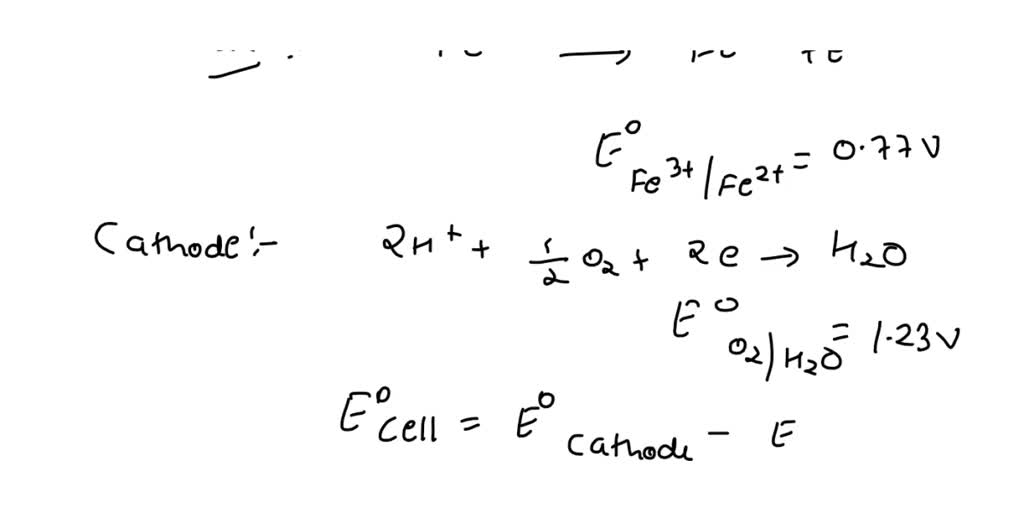 E⁰ Fe³⁺/Fe²⁺ = 0.77 V
Cathode:- 2H⁺ + 1/2 O₂ + 2e → H₂O
E⁰ O₂/H₂O = 1.23 V
E⁰cell = E⁰cathode - E